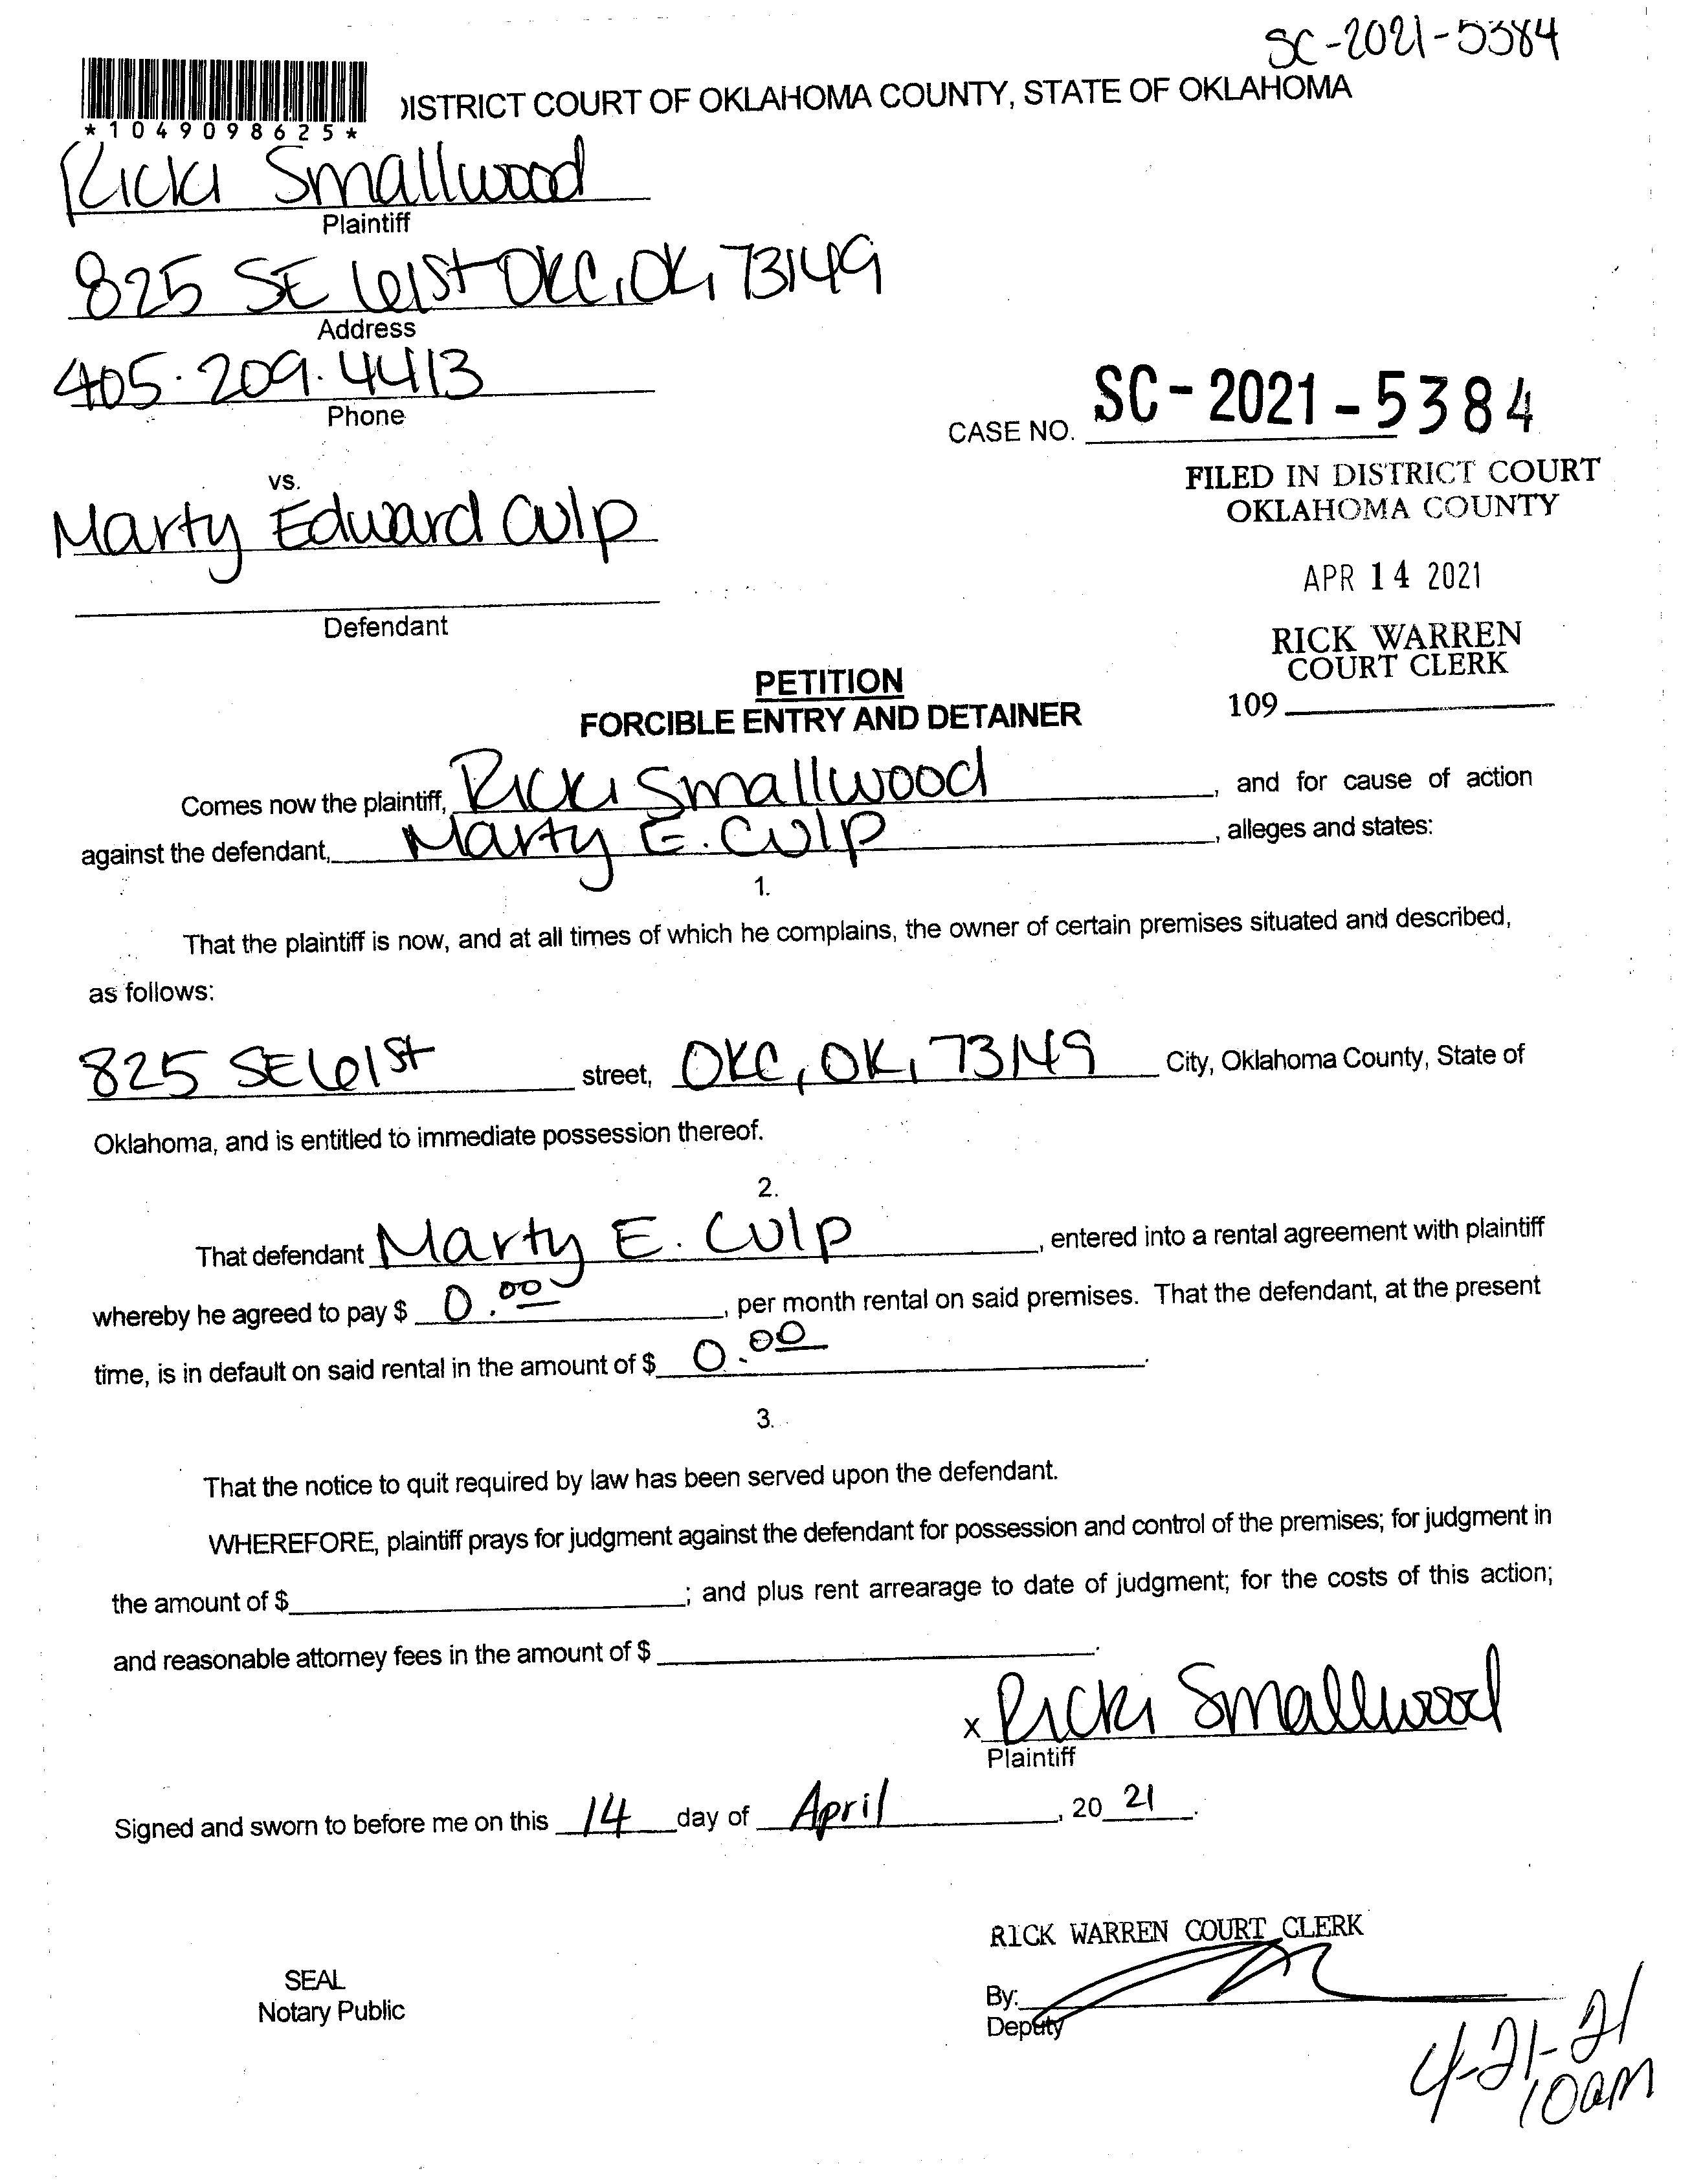 SC-2021-5384
DISTRICT COURT OF OKLAHOMA COUNTY, STATE OF OKLAHOMA
*1049098625*
Ricki Smallwood
Plaintiff
825 SE 61st OKC, OK, 73149
Address
405.209.4413
Phone
CASE NO. SC-2021-5384
vs.
FILED IN DISTRICT COURT
OKLAHOMA COUNTY
Marty Edward Culp
APR 14 2021
Defendant
RICK WARREN
COURT CLERK
109
PETITION
FORCIBLE ENTRY AND DETAINER
Comes now the plaintiff, Ricki Smallwood, and for cause of action
against the defendant, Marty E. Culp, alleges and states:
1.
That the plaintiff is now, and at all times of which he complains, the owner of certain premises situated and described,
as follows:
825 SE 61st street, OKC, OK, 73149 City, Oklahoma County, State of
Oklahoma, and is entitled to immediate possession thereof.
2.
That defendant Marty E. Culp, entered into a rental agreement with plaintiff
whereby he agreed to pay $ 0.00, per month rental on said premises. That the defendant, at the present
time, is in default on said rental in the amount of $ 0.00.
3.
That the notice to quit required by law has been served upon the defendant.
WHEREFORE, plaintiff prays for judgment against the defendant for possession and control of the premises; for judgment in
the amount of $ ; and plus rent arrearage to date of judgment; for the costs of this action;
and reasonable attorney fees in the amount of $ .
x Ricki Smallwood
Plaintiff
Signed and sworn to before me on this 14 day of April, 20 21.
RICK WARREN COURT CLERK
SEAL
Notary Public
By:
Deputy
4-21-21
10am